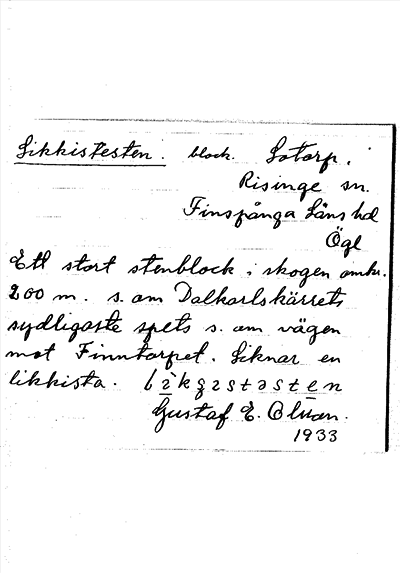 Likkistesten. block. Lotorp.
Risinge sn.
Finspånga Läns hd
Ögl
Ett stort stenblock i skogen omkr.
200 m. s. om Dalkarlskärrets
sydligaste spets s. om vägen
mot Finntorpet. Liknar en
likkista.
Gustaf E. Oluson.
1933